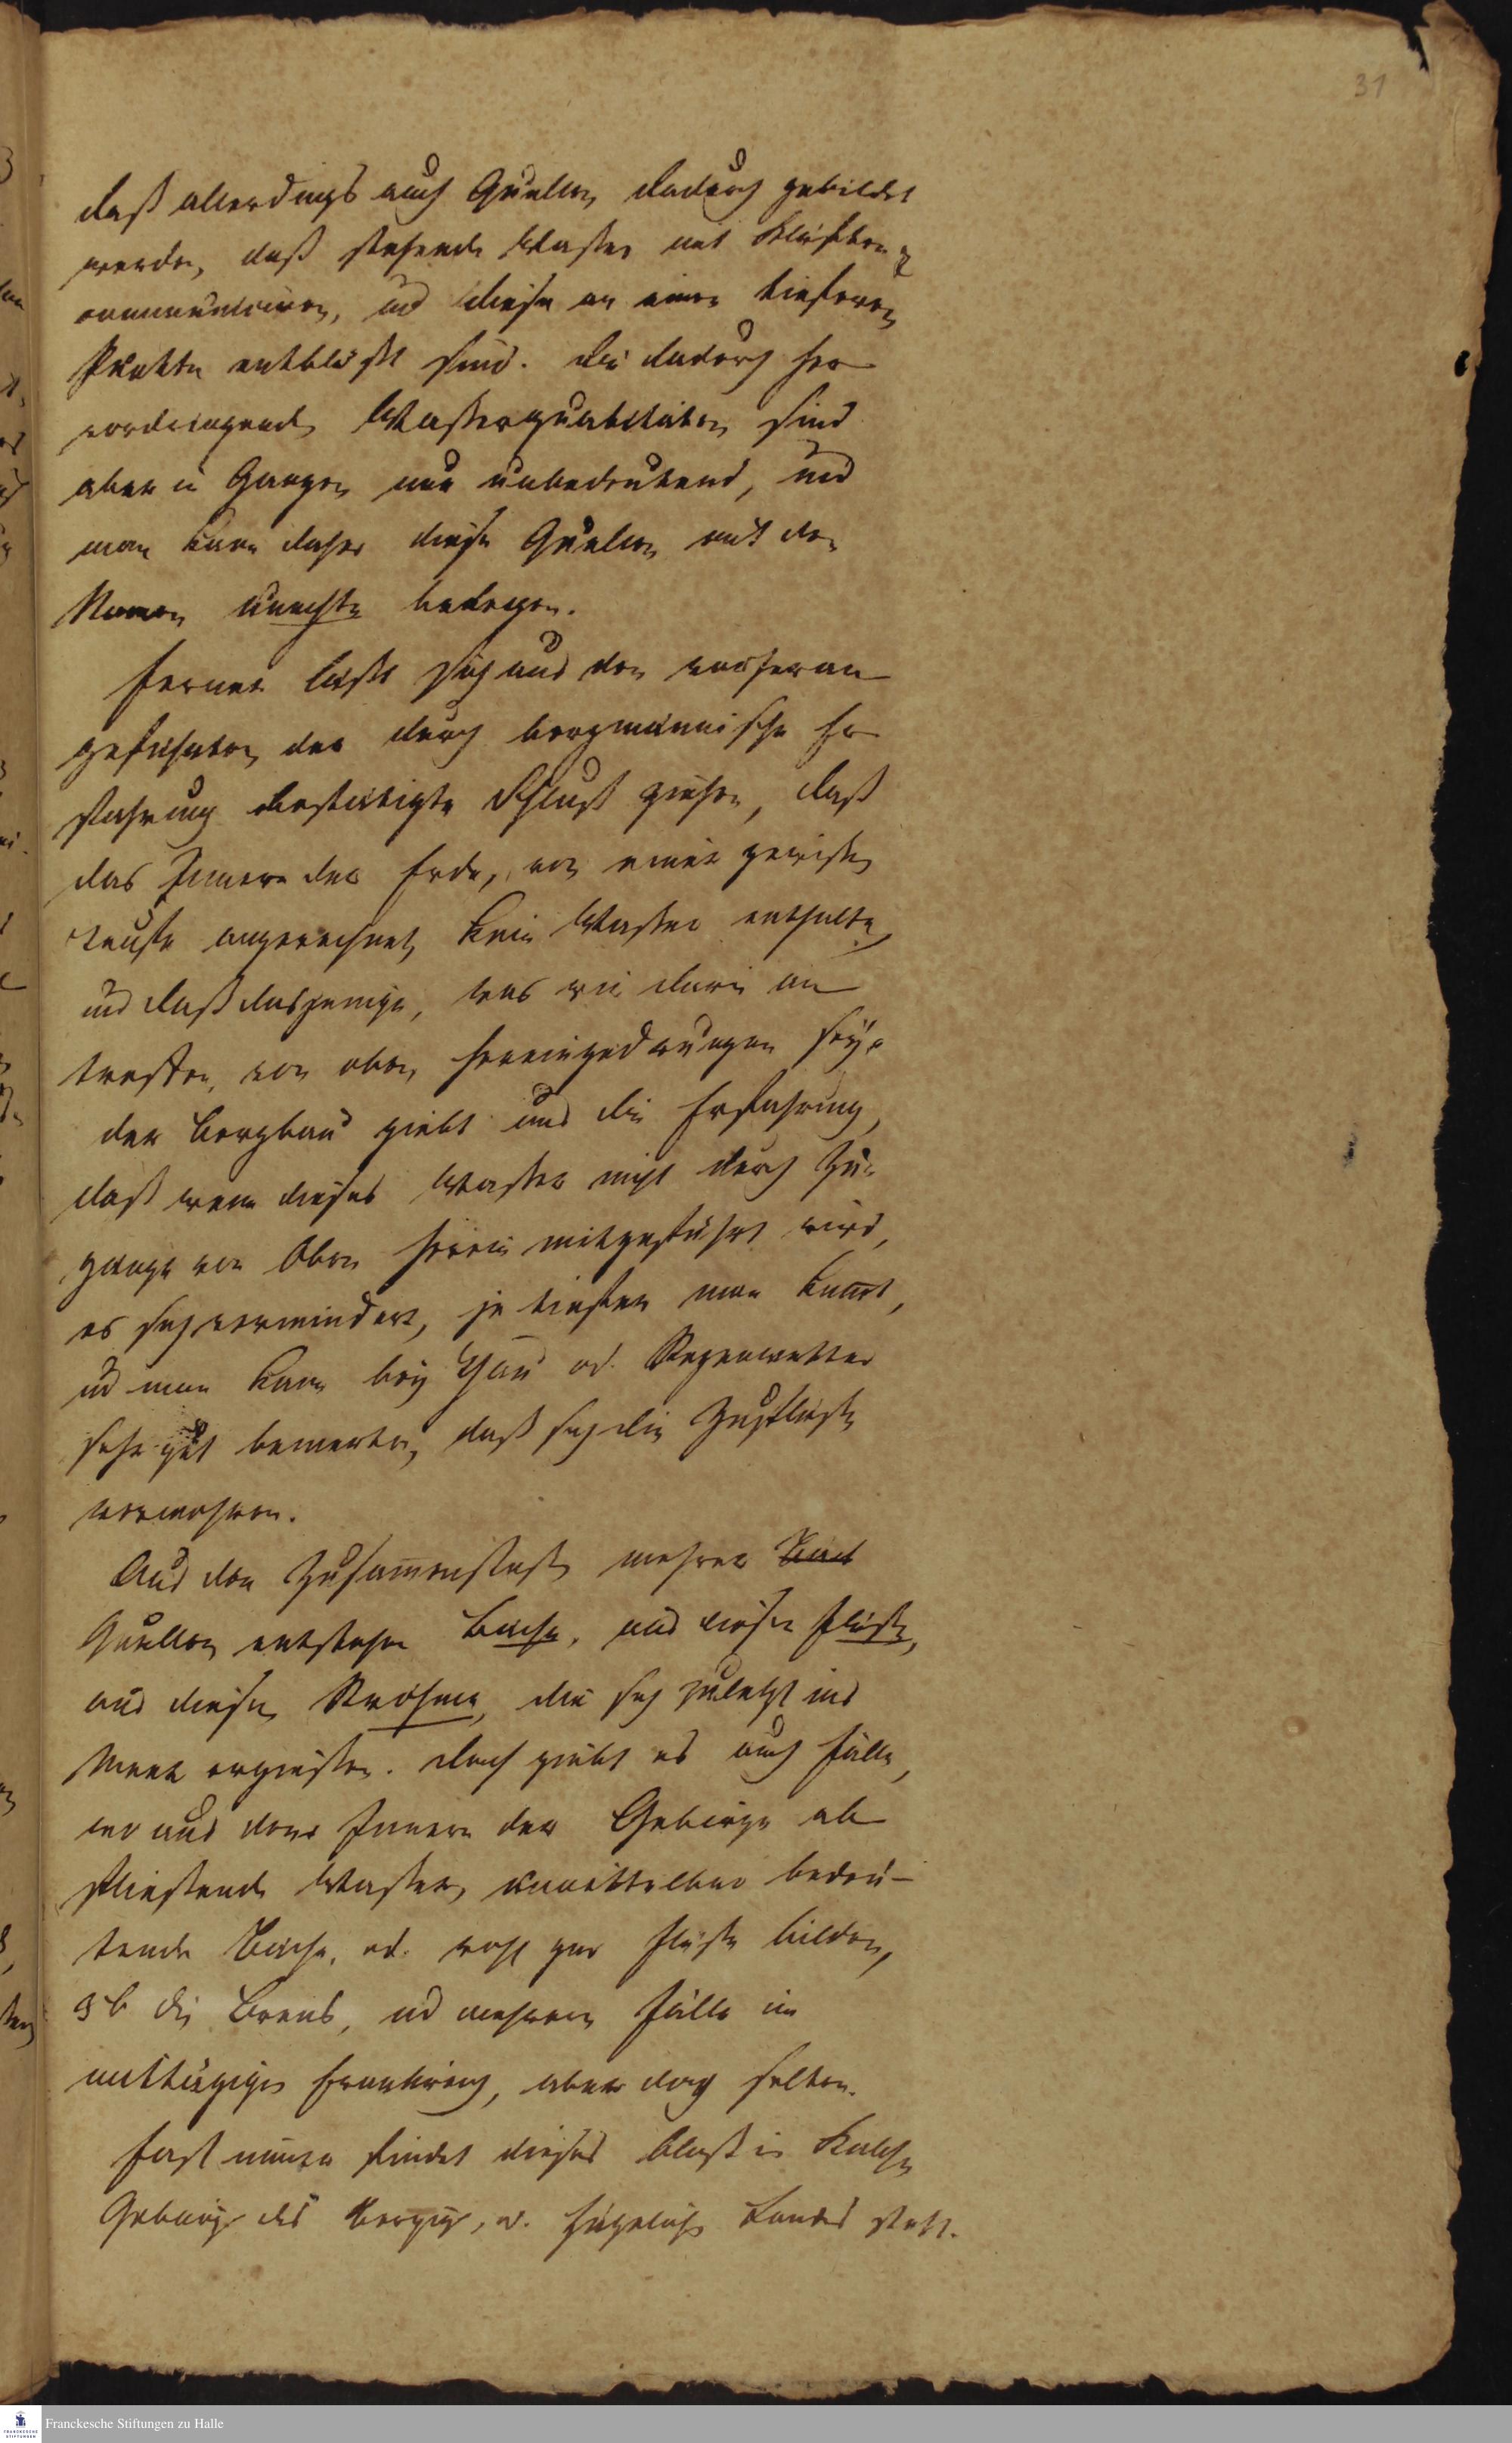 31
daß allerdings auch Quellen dadurch gebildet
werden, daß stehende Wasser mit Klüften
communiciren, und diese an einem tieferen
Punkte entblößt sind. Die dadurch her
vordringenden Wasserquantitäten sind
aber in Ganzen nur unbedeutend, und
man kann daher diese Quellen mit dem
Namen unächte belegen.
Ferner läßt sich aus den vorheran
geführten der durch bergmännische Er
fahrung bestätigte Schluß ziehen, daß
das Innere der Erde, von einer gewissen
Teufe angerechnet, kein Wasser enthalte,
und daß dasjenige, was wir darin an
treffen, von oben hereingedrungen sey.
der Bergbau giebt uns die Erfahrung,
daß wenn dieses Wasser nicht durch Zu-
gänge von Oben herein mitgeführt wird,
es sich vermindert, je tiefer man kommt,
und man kann bey Thau od. Regenwetter
sehr gut bemerken, daß sich die Zuflüsse
vermehren.
Aus den Zusammenfluß mehrer
Quellen entstehen Bäche, aus diesen Flüsse,
aus diesen Ströhme, die sich zuletzt ins
Meer ergießen. Doch giebt es auch Fälle,
wo aus dem Innern der Gebirge ab
fließende Wasser, unmittelbar bedeu-
tende Bäche, od. wohl gar Flüsse bilden,
zb die, und mehrere Fälle im
mittägigen Frankreich, aber doch selten.
Fast immer findet dieses bloß in Kalch
Gebirge des bergigen, u. hügelichen Landes statt.
Franckesche Stiftungen zu Halle